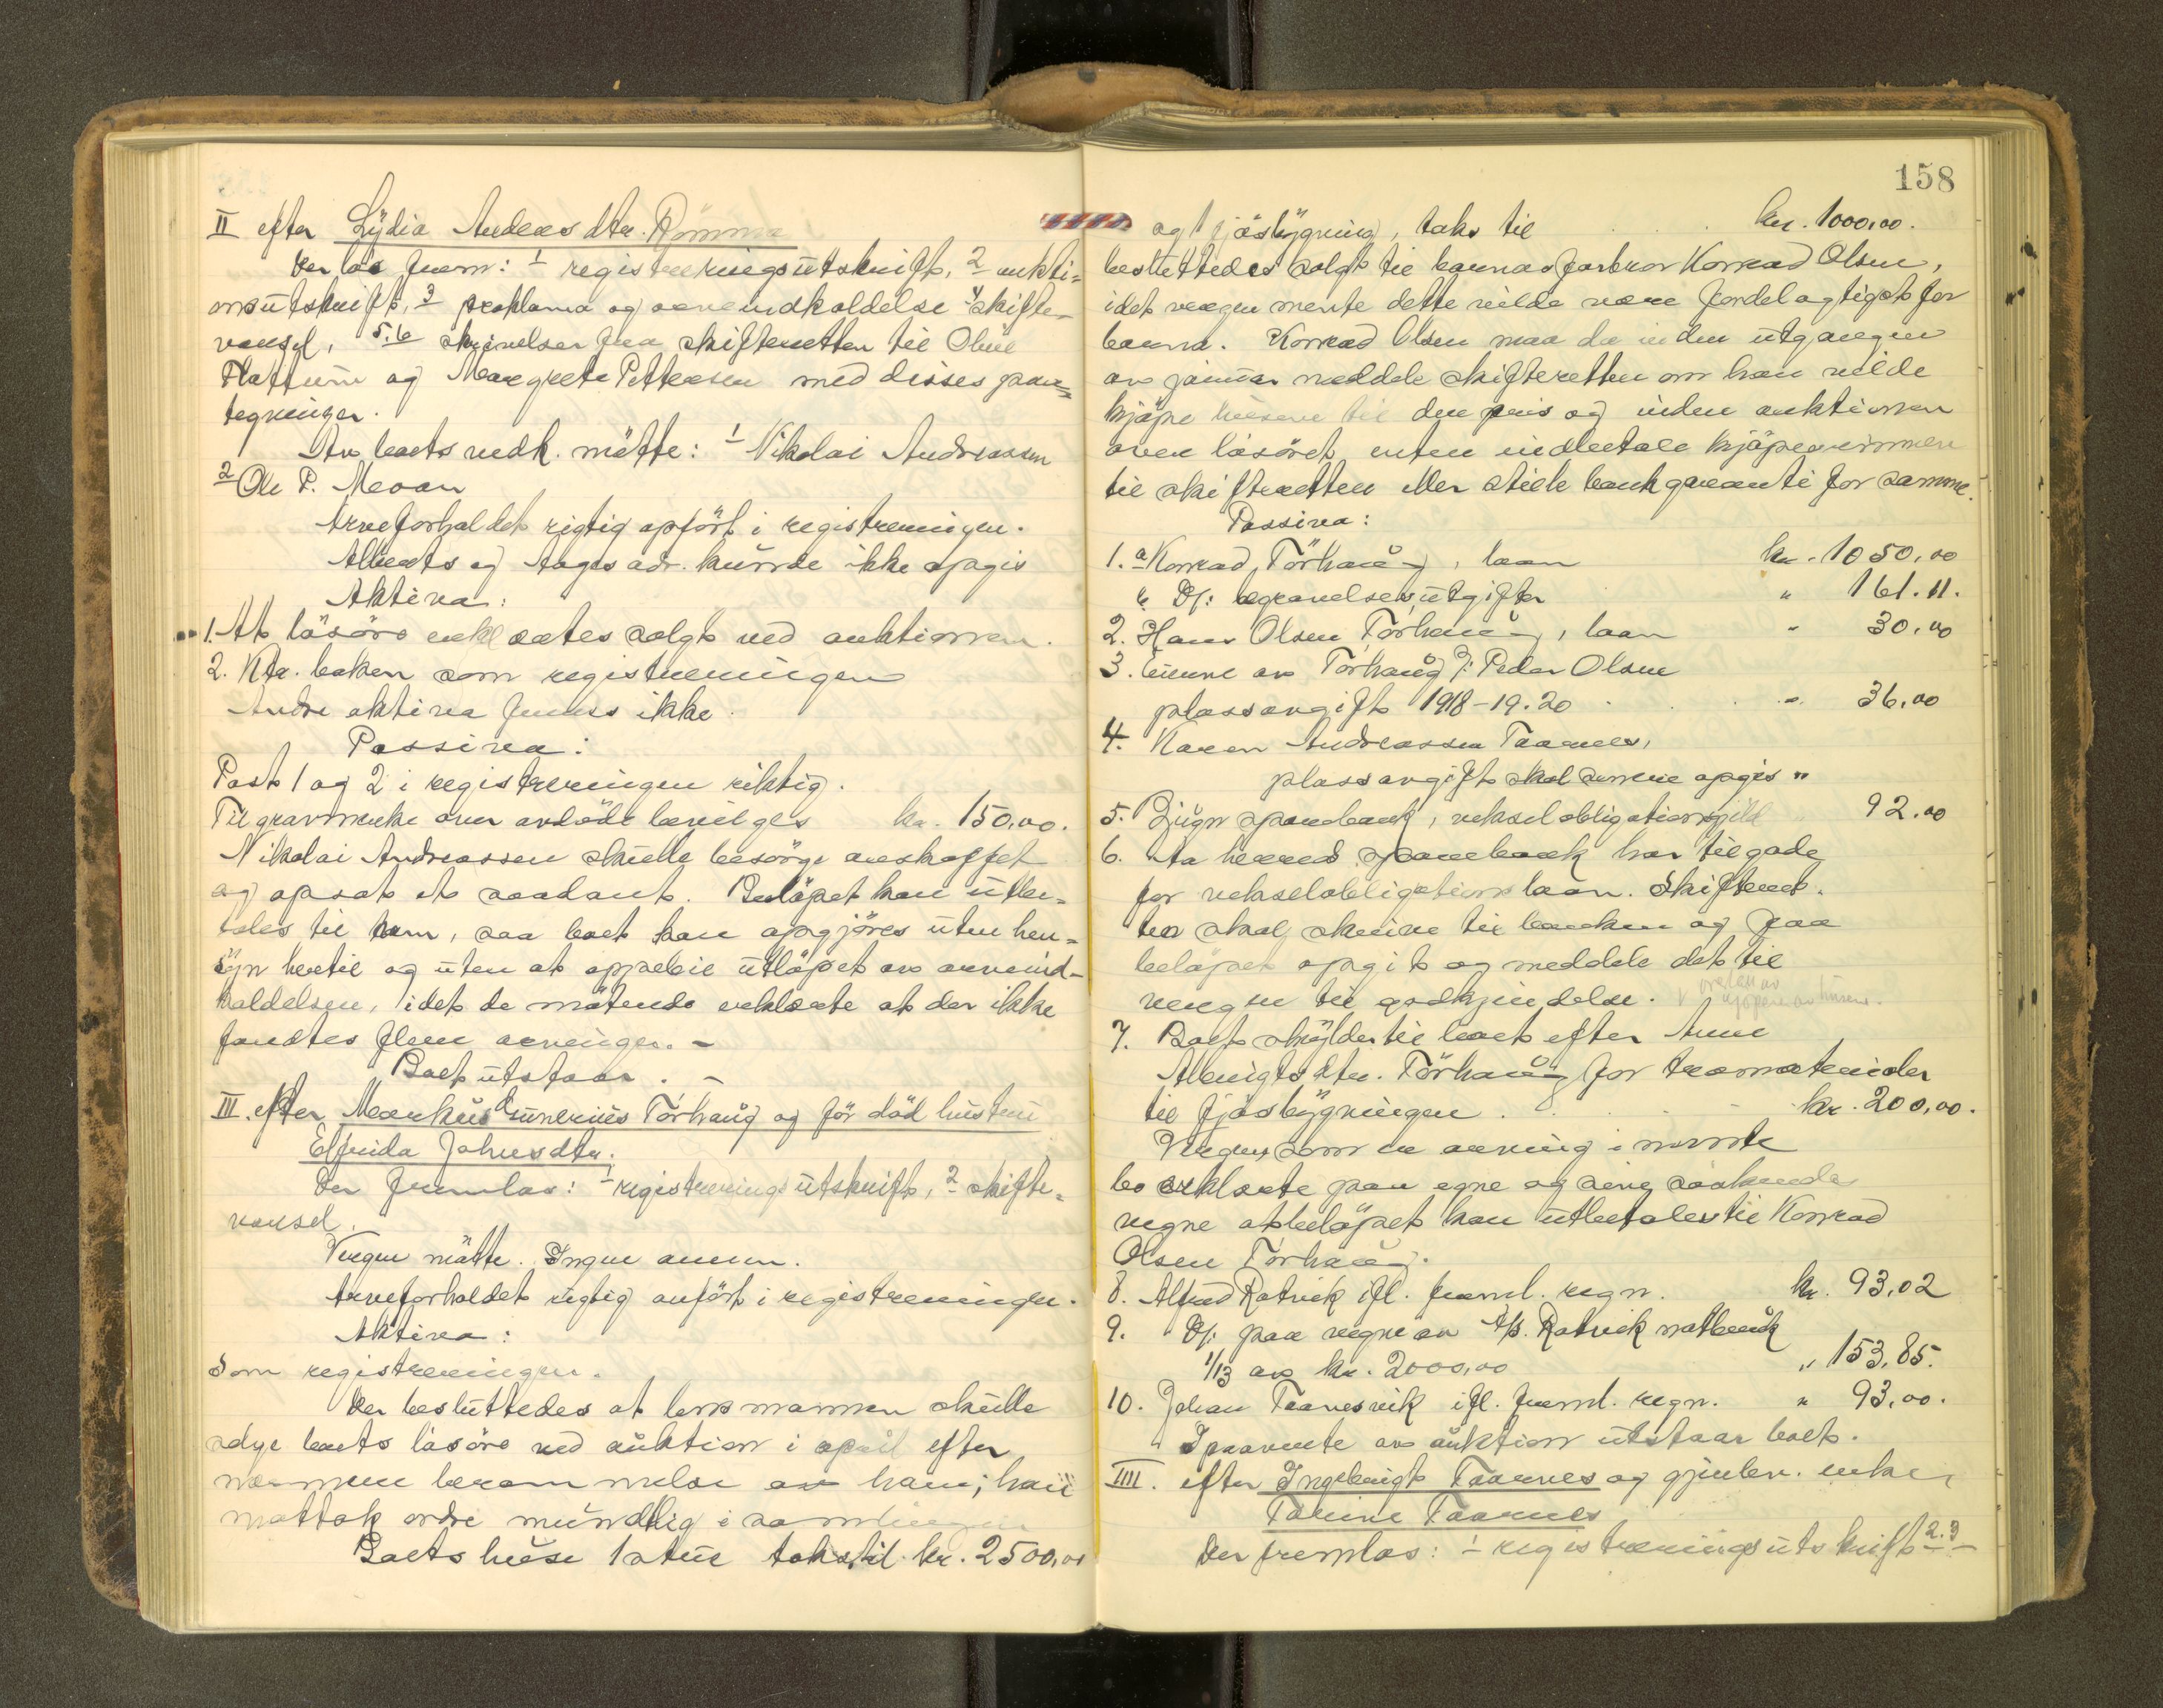 II efter Lydia Andersdtr. Römma
Der laa frem: 1 registreringsutskrift, 2 aukti-
onsutskrift, 3 proklama og arveindkaldelse 4 skifte-
varsel, 5.6 skrivelser fra skifteretten til Oline
Flattum og Margrete Pettersen med disses paa-
tegninger.
Av boets vedk. mötte: 1 Nikolai Andreassen
2 Ole P. Mevan
Arveforholdet rigtig opfört i registreringen.
Alberts og Aages adr. kunde ikke opgis
Aktiva:
1. Alt lösöre erklærtes solgt ved auktionen.
2. Kta. boken som registreringen
Andre aktiva finnes ikke.
Passiva:
Post 1 og 2 i registreringen riktig.
Til gravmerke over avdöde bevilges kr. 150,00.
Nikolai Andreassen skulle besörge anskaffet
og opsat et saadant. Belöpet kan utbe-
tales til ham, saa boet kan opgjöres uten hen-
syn hertil og uten at oppebie utlöpet av arveind-
kaldelsen, idet de mötende erklærte at der ikke
fandtes flere arvinger. -
Boet utstaar. -
III. efter Markus Gunerius Törhaug og för död hustru
Elfrida Johnsdtr.
Der fremlaa: 1 registreringsutskrift, 2 skifte-
varsel.
Vergen mötte. Ingen annen.
Arveforholdet rigtig anfört i registreringen.
Aktiva:
Som registreringen.
Der besluttedes at lensmannen skulle
selge boets lösöre ved auktion i april efter
nærmere berammelse av ham; han
mottok ordre mundtlig i samlingen
Boets huse 1 stue takst til kr. 2500,00
158
og 1 fjösbygning, takst til kr. 1000,00.
besluttedes solgt til barnas farbror Konrad Olsen,
idet vergen mente dette vilde være fordelagtigst for
barna. Konrad Olsen maa da inden utgangen
av januar meddele skifteretten om han vilde
kjöpe husene til den pris og inden auktionen
over lösöret enten indbetale kjöpesummen
til skifteretten eller stille bankgaranti for samme.
Passiva:
1. a Konrad Törhaug, laan kr. 1050,00
b Ds: begravelsesutgifter " 161.11.
2. Hans Olsen Törhaug, laan " 30,00
3. Eierne av Törhaug v/ Peder Olsen
plassavgift 1918-19.20 " 36,00
4. Karen Andreassen Taarnes,
plassavgift skal senere opgis "
5. Bjugn sparebank, vekselobligationsgjeld 92.00
6. Aa herred sparebank har tilgode
for vekselobligationslaan. Skifteret-
ten skal skrive til banken og faa
belöpet opgit og meddele det til
vergen til godkjendelse.
7. Boet skylder til boet efter Anne
Albrigtsdtr. Törhaug for træmaterialer
til fjösbygningen. kr. 200,00.
Vergen som er arving i nevnte
bo erklærte paa egne og sine söskendes
vegne at belöpet kan utbetales til Konrad
Olsen Törhaug.
8. Alfred Ratvik ifl. freml. regn. kr. 93,02
9. Ds: paa vegne av A/S. Ratvik notbruk
1/13 av kr. 2000,00 " 153,85.
10. Johan Taarnesvik ifl. freml. regn. " 93,00.
I paavente av auktion utstaar boet.
IIII. efter Ingebrigt Taarnes og gjenlev. enke
Tarine Taarnes
Der fremlaa: 1 registreringsutskrift 2.3